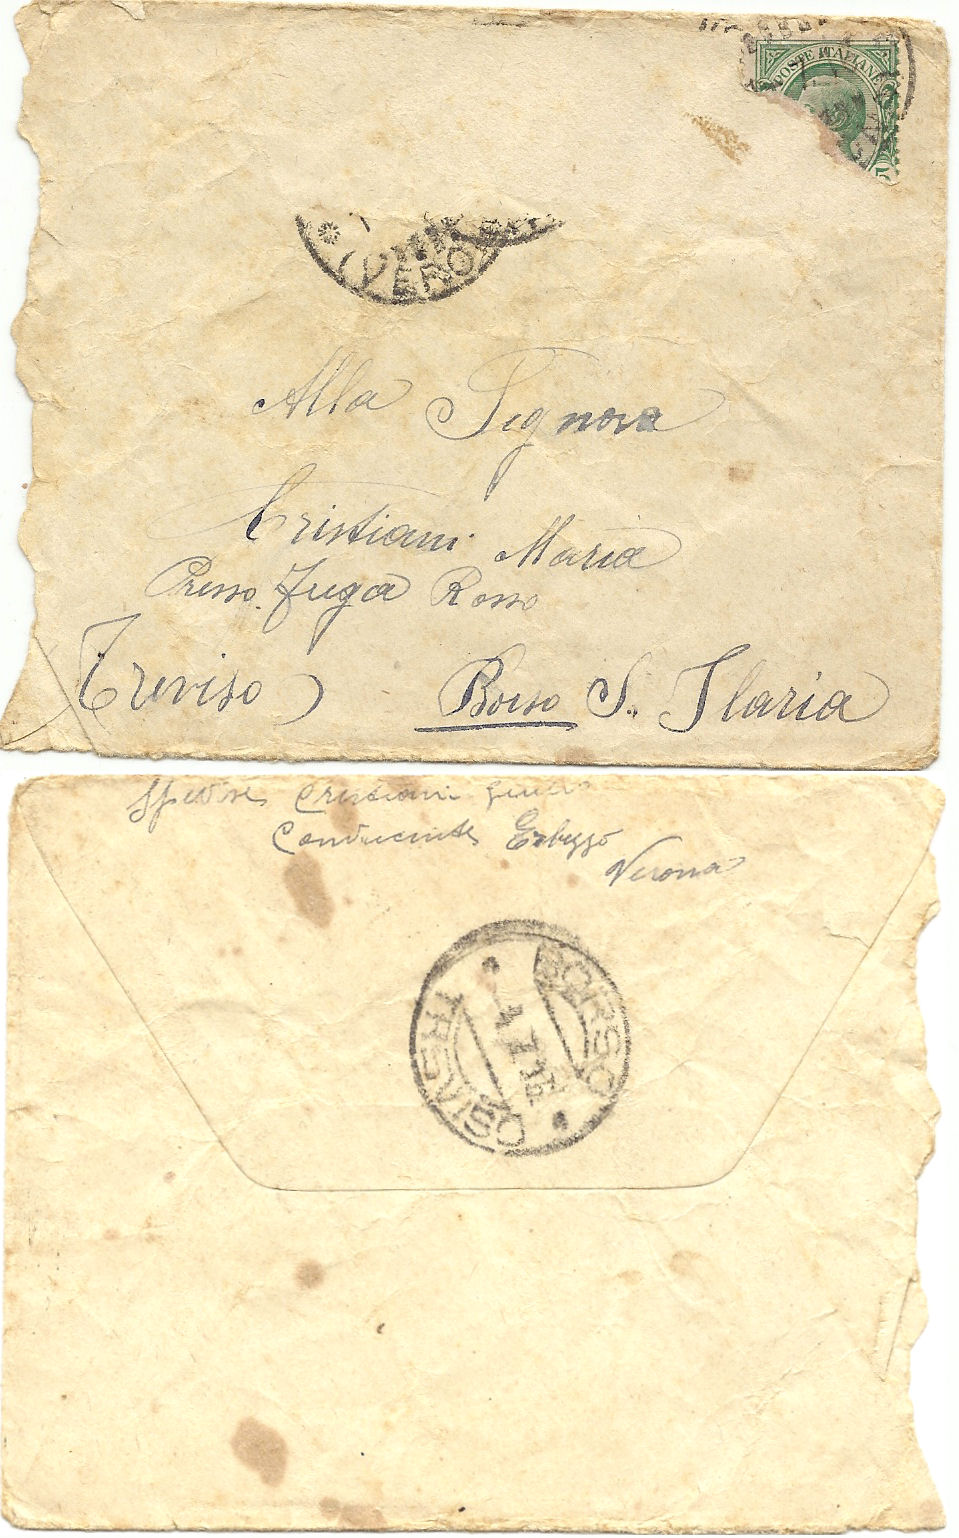 POSTE ITALIANE
5
VERO
Alla Signora
Cristiani Maria
Presso Fuga Rosso
Treviso) Borso S. Ilaria
Cristiani
Conducente Erbezzo
Verona
BORSO
TREVISO